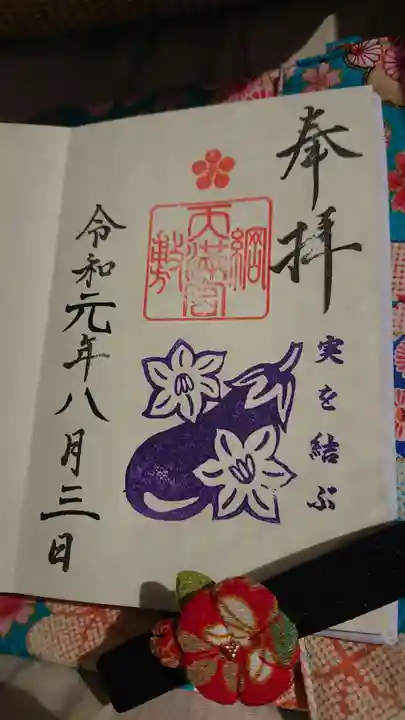 奉拝
実を結ぶ
綱敷天満宮
令和元年八月三日